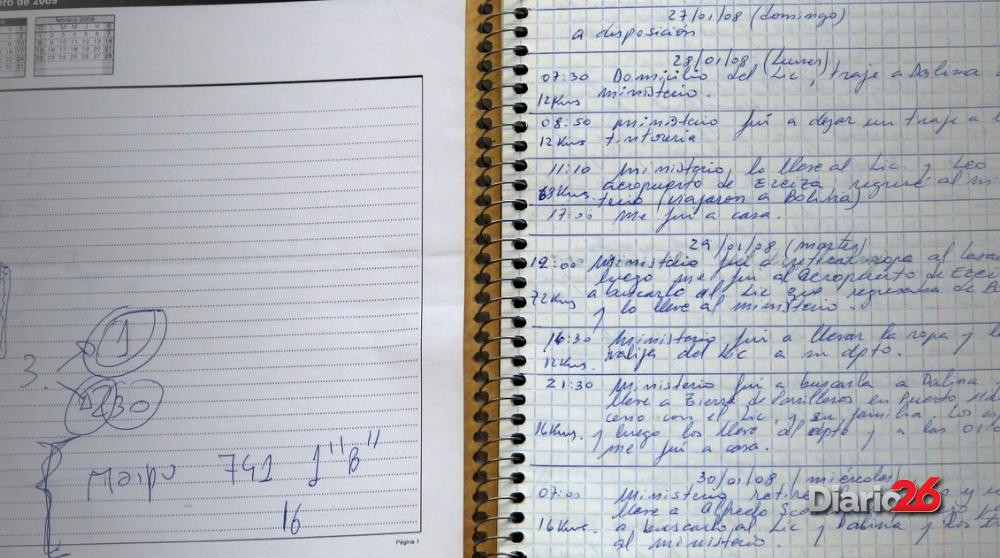 ero de 2009
febrero 2009
3.
1
2230
Maipu 741 1"B"
16
Página 1
27/01/08 (domingo)
a disposición
28/01/08 (Lunes)
07:30 Domicilio del Lic, traje a Dalina
12Kms ministerio.
08:50 ministerio fui a dejar un traje a l
12Kms tintoreria
11:10 Ministerio, lo lleve al Lic. y Leo
68Kms aeropuerto de Ezeiza, regresé al mi
terio (viajaron a Bolivia)
17:00 me fui a casa.
29/01/08 (martes)
19:00 Ministerio fui a retirar ropa al lava
luego me fui al aeropuerto de Ezei
72Kms a buscarlo al Lic que regresaba de
y lo lleve al ministerio.
16:30 Ministerio fui a llevar la ropa y l
12Kms. valija del Lic a su dpto.
21:30 Ministerio fui a buscarla a Dalina
lleve a Tierra de Parrilleros en Puerto Ma
ceno con el Lic, y su familia. Los es
16Kms. y luego los lleve al dpto y a las 01:0
me fui a casa.
30/01/08 (miércoles)
07:00 Ministerio retire
lleve a Alfredo Sco
16Kms. a buscarlo al Lic y Dalina y los
al ministerio.
Diario26